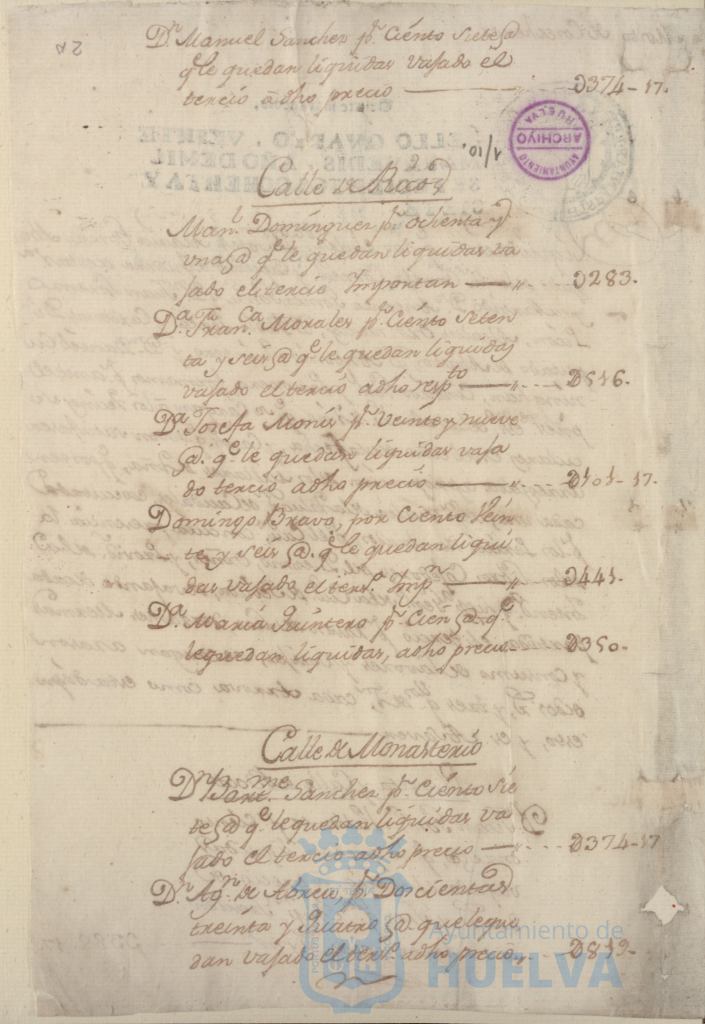 Dn. Manuel Sanchez pr. Ciento siete @
qe. le quedan liquidas vajado el
tercio a dho precio — " — D374-17.
AYUNTAMIENTO
ARCHIVO
HUELVA
1/10.
26
Calle de
Manl. Dominguez pr. ochenta y
vna @ qe. le quedan liquidas va
jado el tercio Importan — " — D283.
Da. Franca. Morales pr. Ciento Seten
ta y seis @ qe. le quedan liquidas
vajado el tercio adho respto — " — D616.
Da. Josefa Monis pr. Veinte y nueve
@. qe. le quedan liquidas vaja
do tercio adho precio — " — D101-17.
Domingo Bravo, por Ciento Vein
te y seis @. qe. le quedan liqui
das vajado el terco. Impn — " — D441.
Da. Maria Quintero pr. Cien @. qe.
le quedan liquidas, adho precio — D350.
Calle de Monasterio
Dn. Sanchez pr. Ciento Sie
te @ qe. le quedan liquidas va
jado el tercio adho precio — " — D374-17
Dn. Agn. de Abreu, pr. Dorcientas
treinta y Quatro @. que le que
dan vajado el terco. adho precio — D819.
Ayuntamiento de
HUELVA